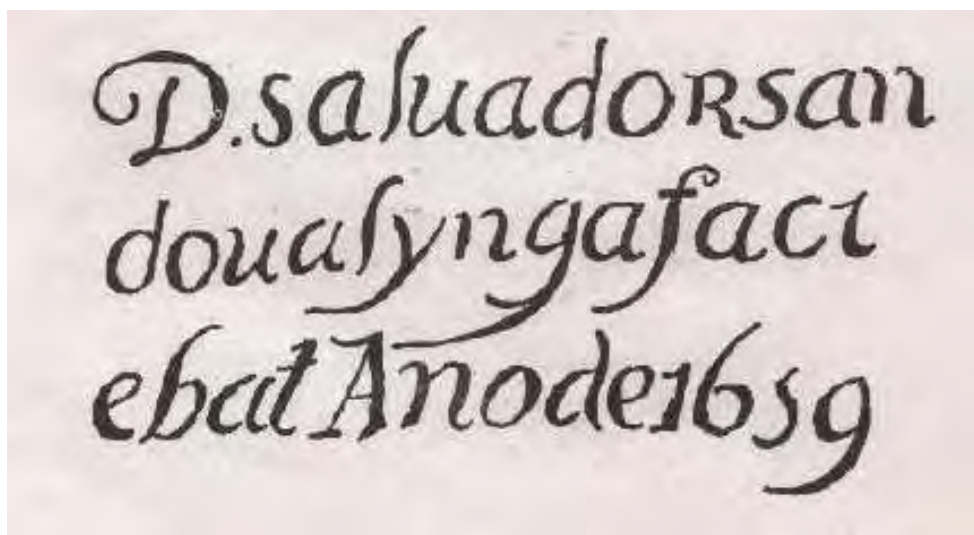 D. saluadorsan
doualyngafaci
ebat Anode1659